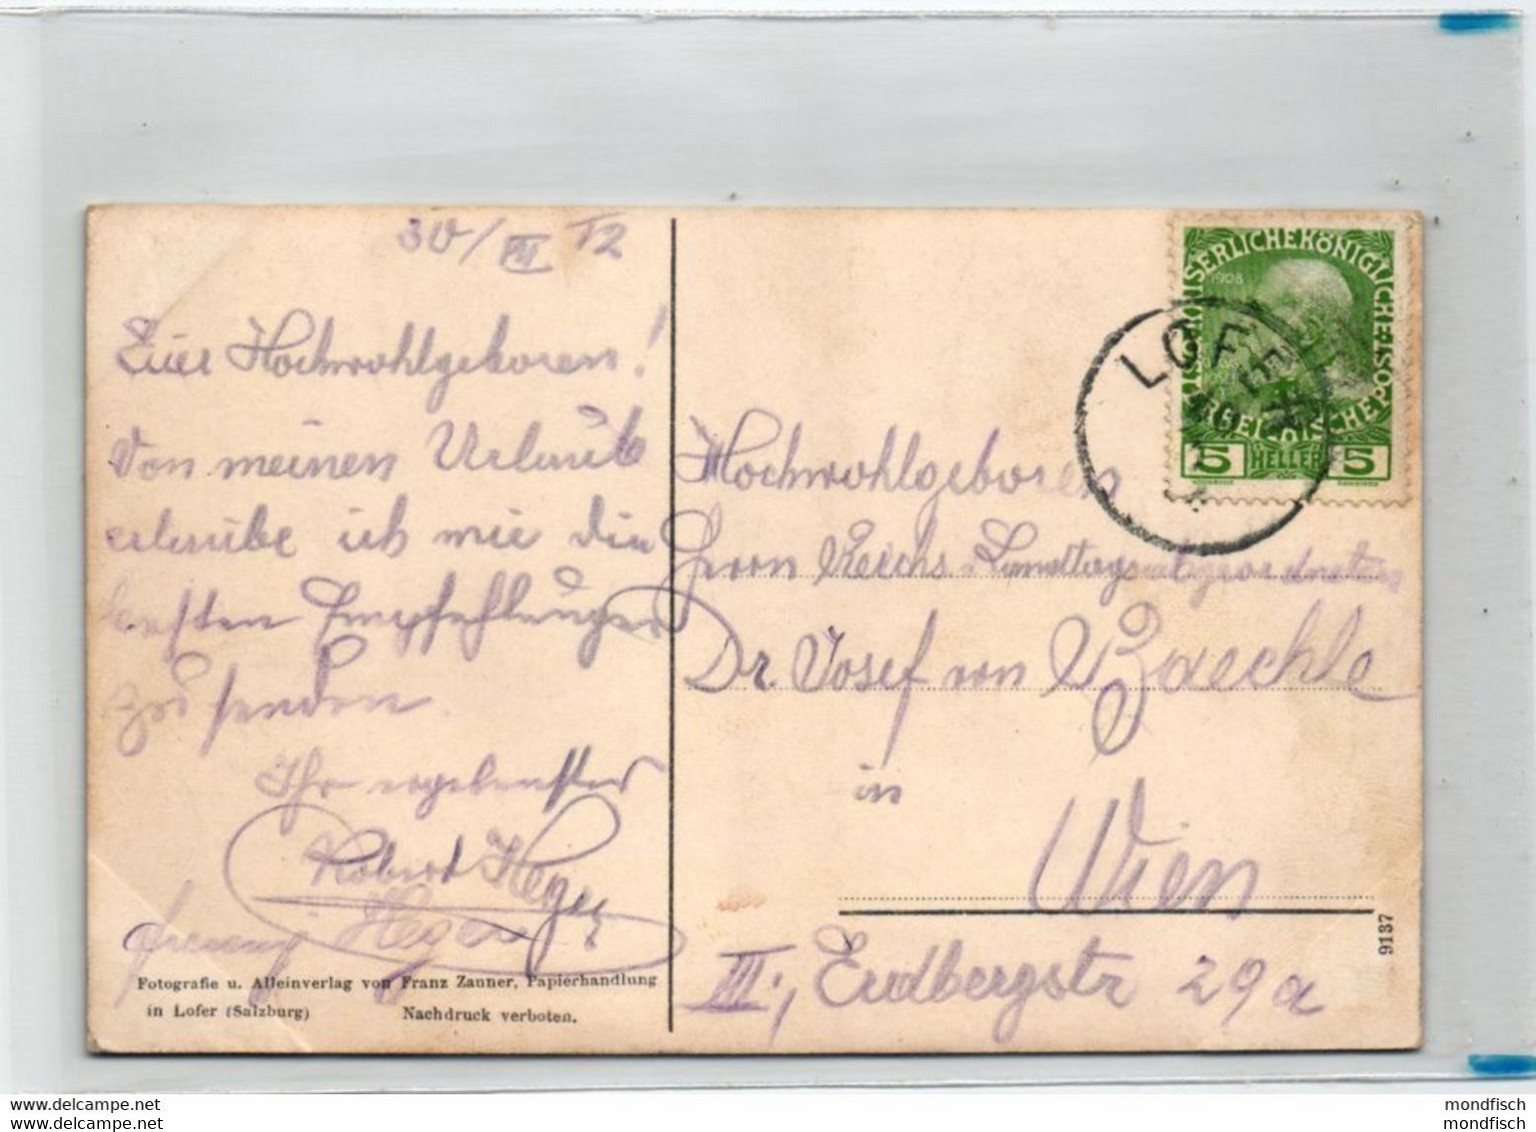 30/VII 12
Euer Hochwohlgeboren!
Von meinen Urlaub
erlaube ich mir die
besten Empfehlungen
zu senden
Ihr ergebenster
Robert Heger
Heger
Hochwohlgeboren
Herrn Reichs u. Landtagsabgeordneten
Dr. Josef von Baechle
in
Wien
III., Erdbergstr 29a
KAISERLICHE KÖNIGLICHE
1908
5 HELLER 5
LOFER
Fotografie u. Alleinverlag von Franz Zauner, Papierhandlung
in Lofer (Salzburg) Nachdruck verboten.
9137
delcampe.net
mondfisch
delcampe.net
mondfisch